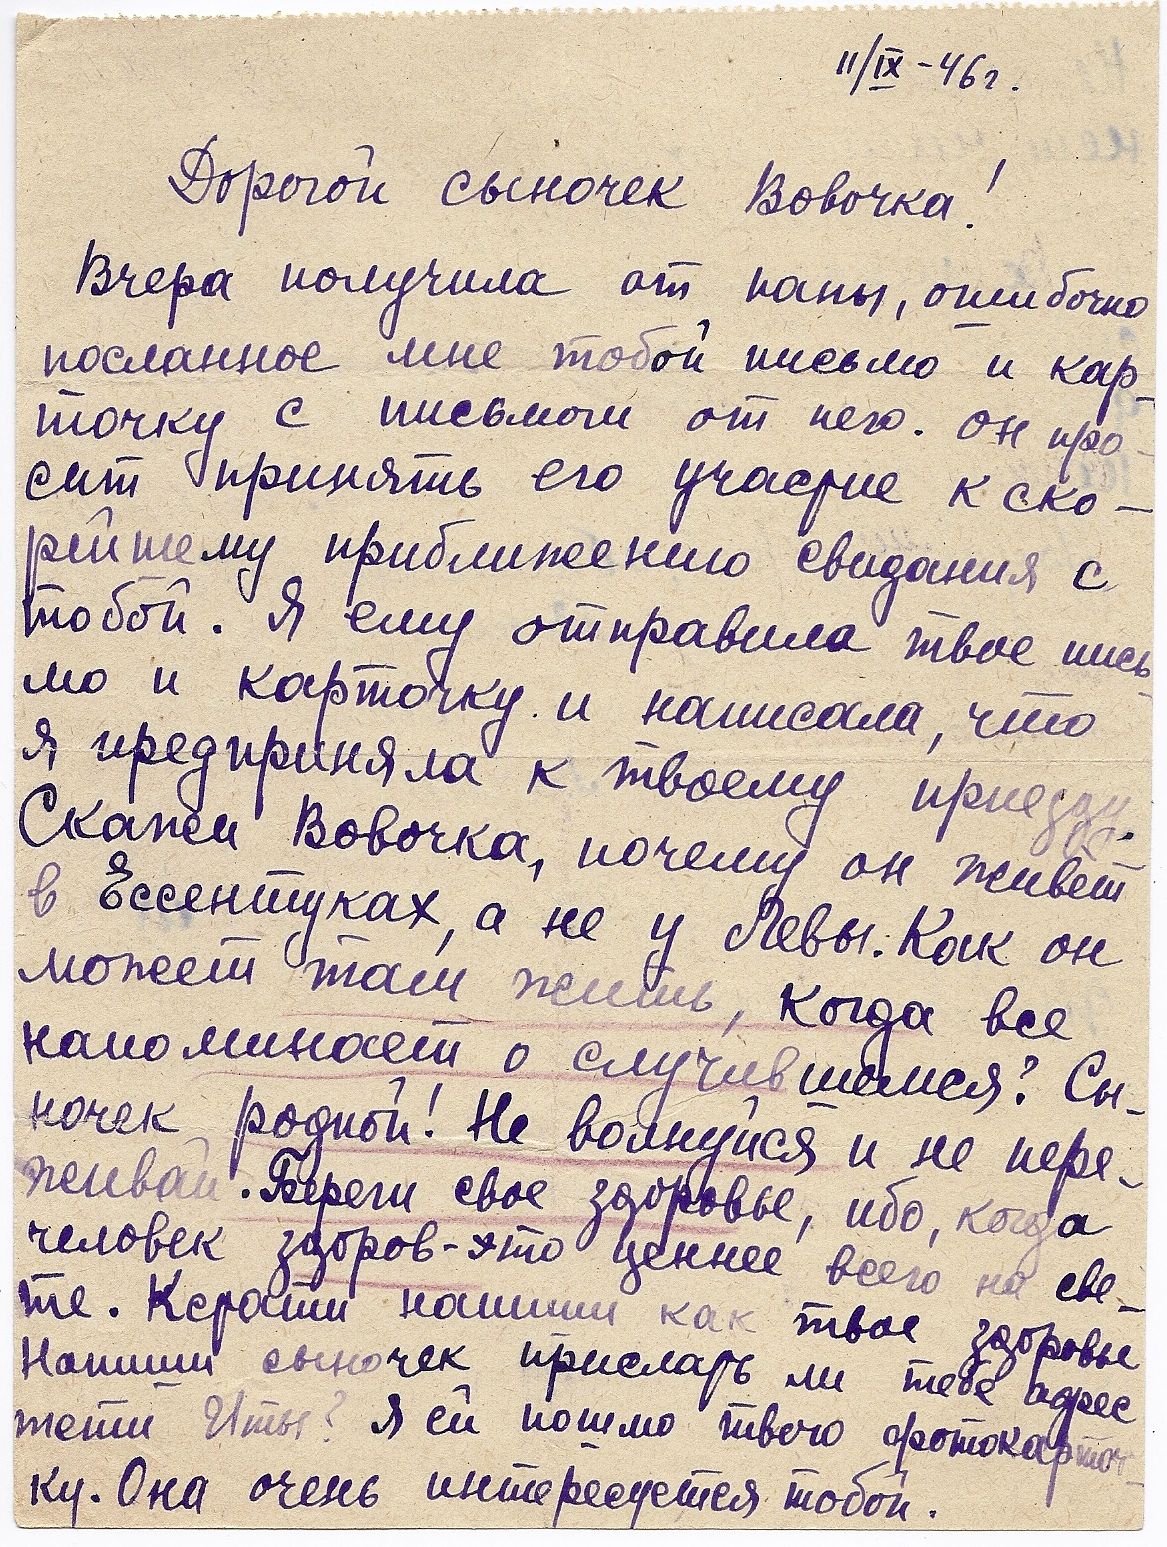 11/IX-46г.
Дорогой сыночек Вовочка!
Вчера получила от папы, ошибочно
посланное мне тобой письмо и кар-
точку с письмом от него. Он про-
сит принять его участие к ско-
рейшему приближению свидания с
тобой. Я ему отправила твое пись-
мо и карточку и написала, что
я предприняла к твоему приезду.
Скажи Вовочка, почему он живет
в Ессентуках, а не у Левы. Как он
может там жить, когда все
напоминает о случившемся? Сы-
ночек родной! Не волнуйся и не пере-
живай. Береги свое здоровье, ибо, когда
человек здоров - это ценнее всего на све-
те. Кстати напиши как твое здоровье
Напиши сыночек прислать ли тебе адрес
тети Иты? Я ей пошлю твою фотокарточ-
ку. Она очень интересуется тобой.